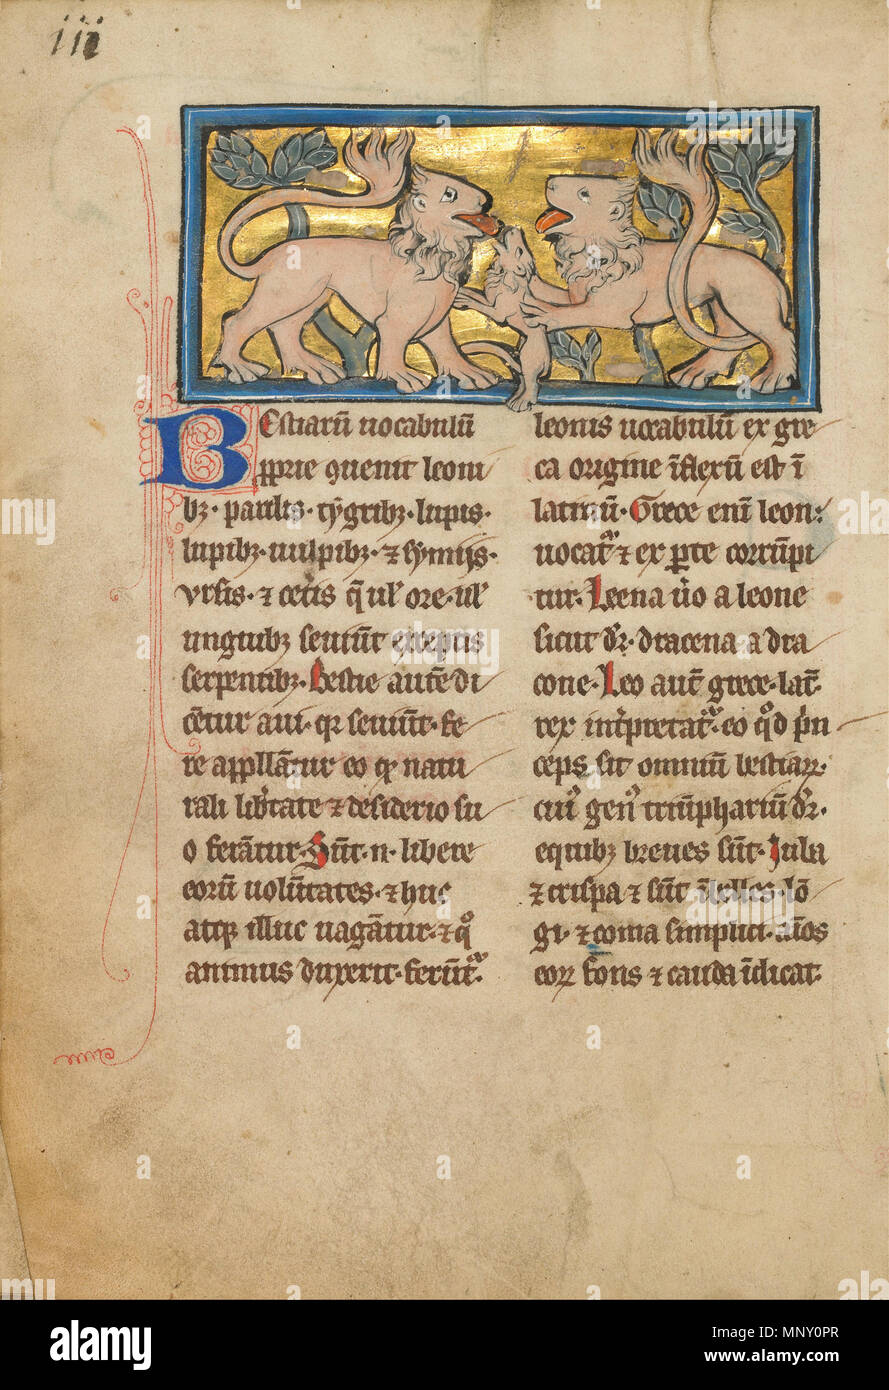 iii
BEstiarū uocabulū
ꝓprie ꝯuenit leoni
bꝫ· pardis· tygribꝫ· lupis·
lupibꝫ· uulpibꝫ· ⁊ symijs·
vrsis· ⁊ cet̄is q̄ ul' ore· ul'
unguibꝫ seuiūt exceptis
serpentibꝫ· Bestie autē di
cūtur a ui· qꝛ seuiūt· fe
re appllātur eo qꝫ natu
rali lib̄tate ⁊ desiderio su
o ferātur· Sūt· n· libere
eorū uolūtates· ⁊ huc
atqꝫ illuc uagātur· ⁊ qͦ
animus duxerit· ferūt᷑·
leonis uocabulū ex gre
ca origine īflexū est ī
latinū· Grece enī leon·
uocat᷑ ⁊ ex ꝑte corrūpi
tur· Leena u̇o a leone
sicut dr̄· dracena a dra
cone· Leo aut̄ grece· lat̄·
rex int̄pretat᷑· eo qͦd p̄n
ceps sit omniū bestiaꝝ·
cui᷒ gen᷒ trīphariū dr̄·
e quibꝫ breues sūt· Iuba
⁊ crispa ⁊ sūt ībelles· lō
gi· ⁊ coma simplici· aīos
eoꝝ frons ⁊ cauda īdicat·
alamy
Image ID: MNY0PR
www.alamy.com